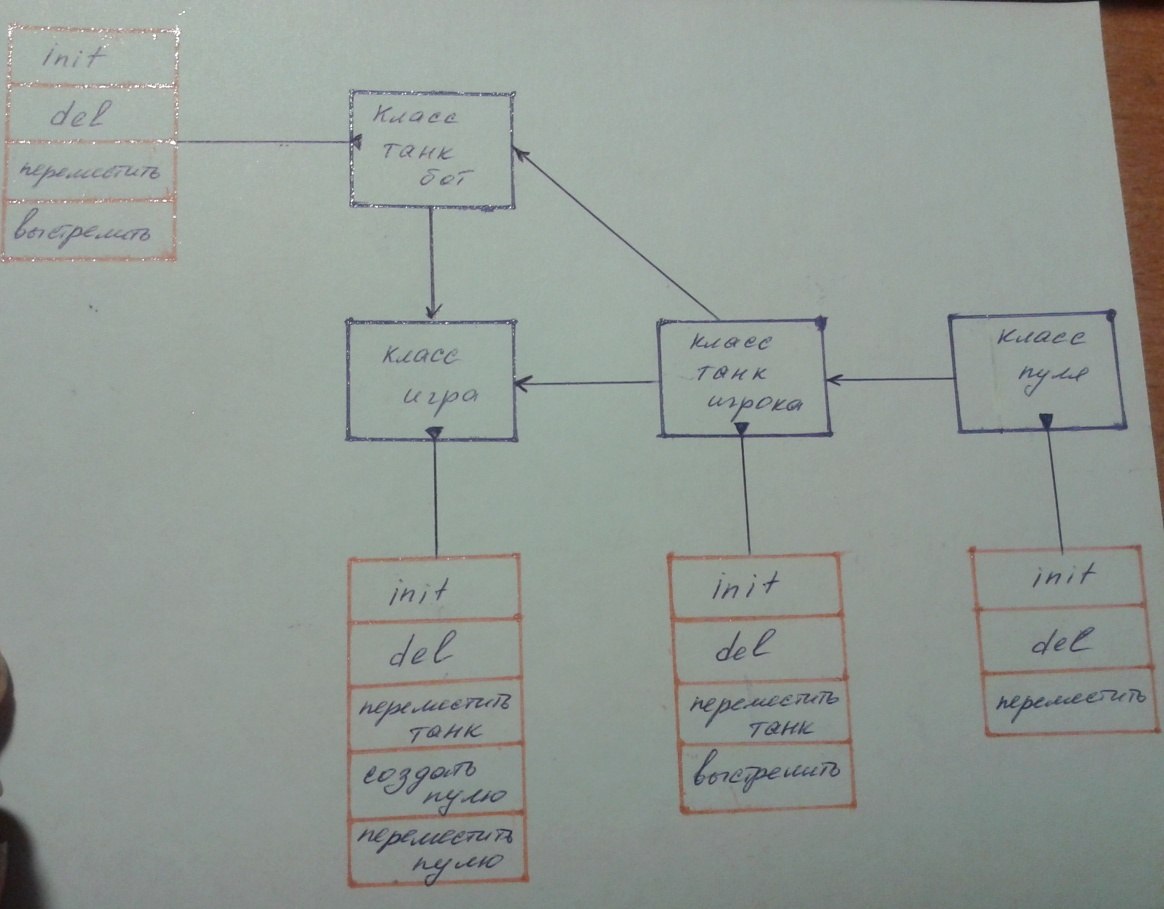 init
del
переместить
выстрелить
класс
танк
бот
класс
игра
класс
танк
игрока
класс
пуля
init
del
переместить
танк
создать
пулю
переместить
пулю
init
del
переместить
танк
выстрелить
init
del
переместить